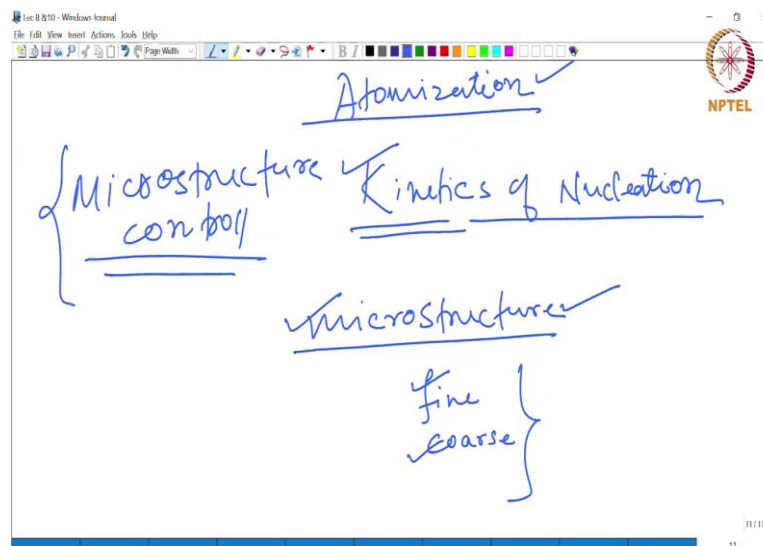 Lec 8 &10 - Windows Journal
File Edit View Insert Actions Tools Help
Page Width
B I
NPTEL
Atomization
Microstructure Kinetics of Nucleation
controll
microstructure
fine
coarse
11